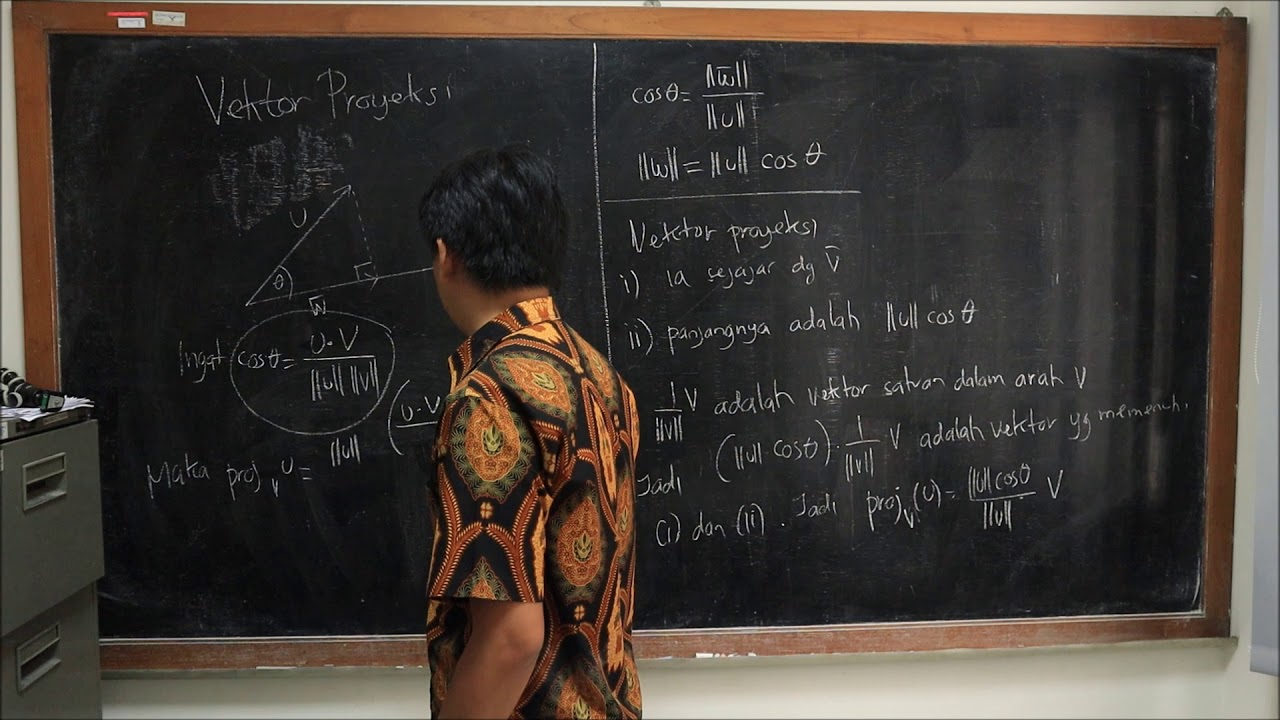 Vektor Proyeksi
U
θ
w̄
Ingat cosθ = U·V / ||u|| ||v||
Maka proj_v U = ||u|| (U·V
cosθ = ||w̄|| / ||u||
||w|| = ||u|| cos θ
Vektor proyeksi
i) Ia sejajar dg v̄
ii) panjangnya adalah ||u|| cos θ
1/||v|| V adalah vektor satuan dalam arah V
Jadi (||u|| cosθ) · 1/||v|| V adalah vektor yg memenuhi
(i) dan (ii). Jadi proj_v(U) = ||u|| cosθ / ||v|| V